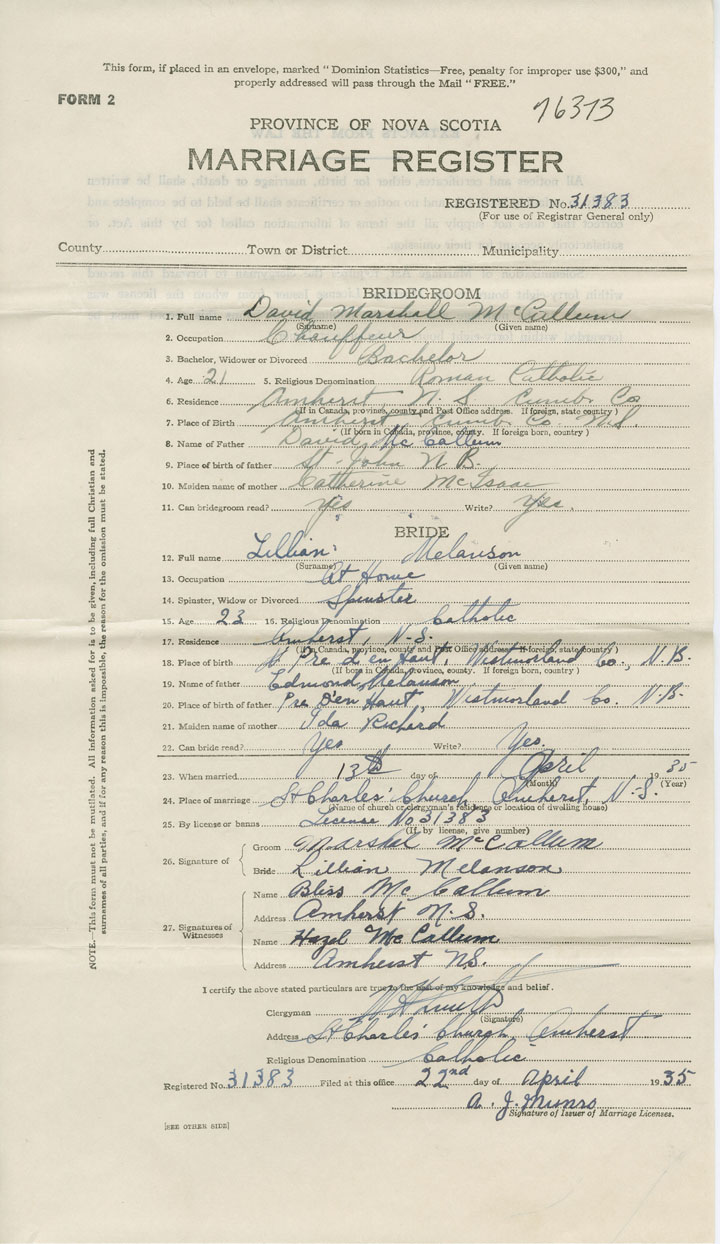 This form, if placed in an envelope, marked "Dominion Statistics—Free, penalty for improper use $300," and
properly addressed will pass through the Mail "FREE."
FORM 2
76373
PROVINCE OF NOVA SCOTIA
MARRIAGE REGISTER
REGISTERED No. 31383
(For use of Registrar General only)
County Town or District Municipality
BRIDEGROOM
1. Full name David Marshall McCallum
(Surname) (Given name)
2. Occupation Chauffeur
3. Bachelor, Widower or Divorced Bachelor
4. Age 21 5. Religious Denomination Roman Catholic
6. Residence Amherst, N. S. Cumb. Co.
(If in Canada, province, county and Post Office address. If foreign, state country)
7. Place of Birth Amherst, Cumb. Co. N.S.
(If born in Canada, province, county. If foreign born, country)
8. Name of Father David McCallum
9. Place of birth of father St. John N B.
10. Maiden name of mother Catherine McIsaac
11. Can bridegroom read? Yes Write? Yes.
BRIDE
12. Full name Lillian Melanson
(Surname) (Given name)
13. Occupation At Home
14. Spinster, Widow or Divorced Spinster
15. Age 23 16. Religious Denomination Catholic
17. Residence Amherst, N.S.
(If in Canada, province, county and Post Office address. If foreign, state country)
18. Place of birth Pre d'en Haut, Westmorland Co., N.B.
(If born in Canada, province, county. If foreign born, country)
19. Name of father Edmond Melanson
20. Place of birth of father Pre D'en Haut, Westmorland Co. N.B.
21. Maiden name of mother Ida Richard
22. Can bride read? Yes Write? Yes.
23. When married 13th day of April 1935
(Month) (Year)
24. Place of marriage St Charles' Church, Amherst, N.S.
(Name of church or clergyman's residence or location of dwelling house)
25. By license or banns License No 31383
(If by license, give number)
26. Signature of Groom Marshal McCallum
Bride Lillian Melanson
27. Signatures of Witnesses
Name Bliss McCallum
Address Amherst N.S.
Name Hazel McCallum
Address Amherst N.S.
I certify the above stated particulars are true to the best of my knowledge and belief.
Clergyman
(Signature)
Address St Charles' Church, Amherst
Religious Denomination Catholic
Registered No. 31383 Filed at this office 22nd day of April 1935
A. J. Munro
Signature of Issuer of Marriage Licenses.
[SEE OTHER SIDE]
NOTE.—This form must not be mutilated. All information asked for is to be given, including full Christian and
surnames of all parties, and if for any reason this is impossible, the reason for the omission must be stated.